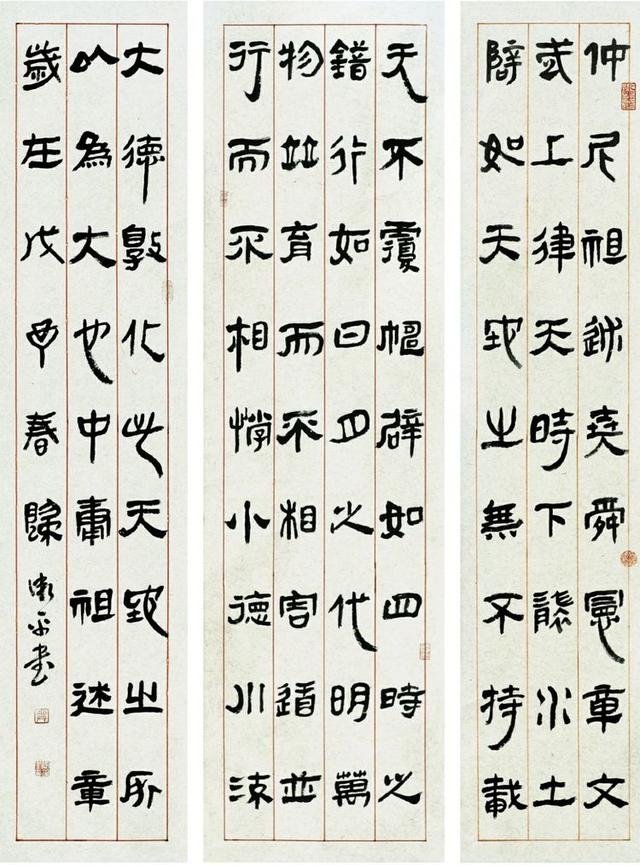 仲尼祖述堯舜憲章文
武上律天時下襲水土
辟如天地之無不持載
无不覆幬辟如四時之
錯行如日月之代明萬
物並育而不相害道並
行而不相悖小德川流
大德敦化此天地之所
以為大也中庸祖述章
歲在戊春歸
平書